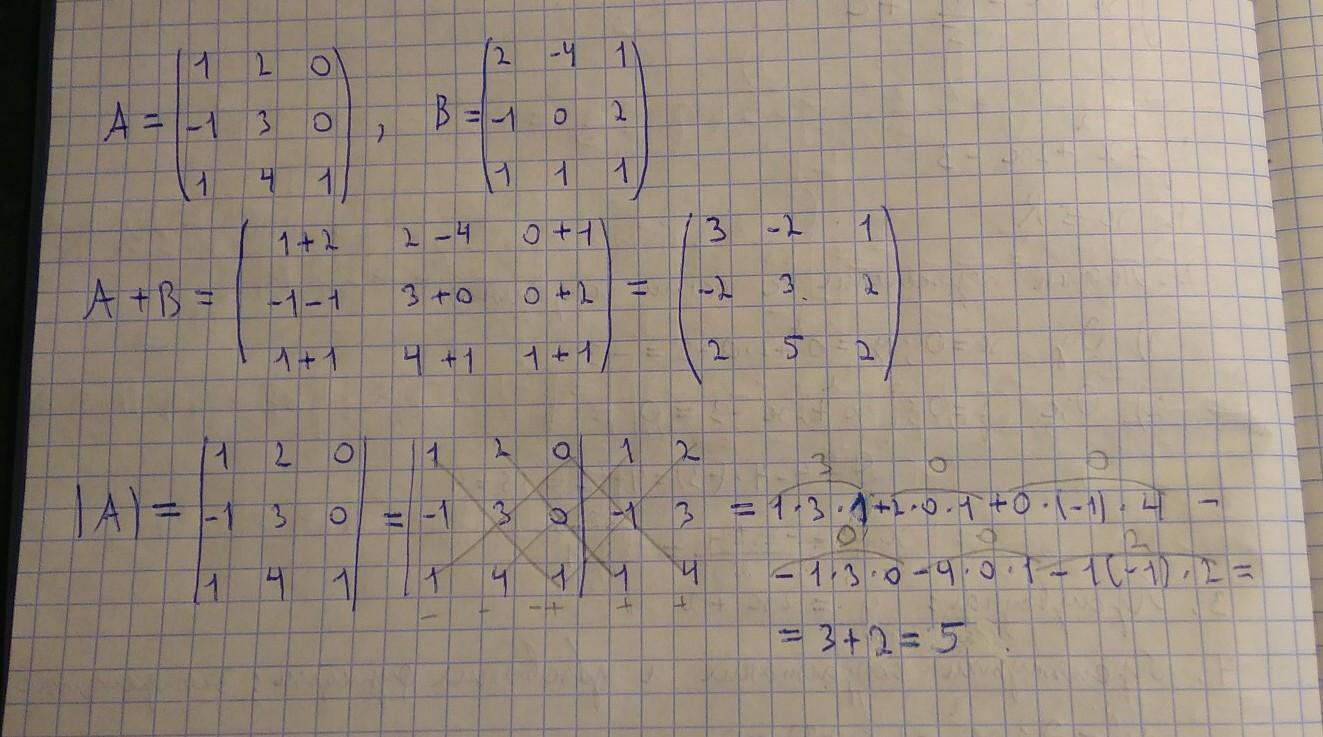 A = (1 2 0
-1 3 0
1 4 1), B = (2 -4 1
-1 0 2
1 1 1)
A + B = (1+2 2-4 0+1
-1-1 3+0 0+2
1+1 4+1 1+1) = (3 -2 1
-2 3 2
2 5 2)
|A| = |1 2 0
-1 3 0
1 4 1| = |1 2 0| 1 2
-1 3 0| -1 3
1 4 1| 1 4
- - - + + +
3 0 0
= 1·3·1+2·0·1+0·(-1)·4 -
0 0 2
- 1·3·0-4·0·1-1(-1)·2 =
= 3+2 = 5